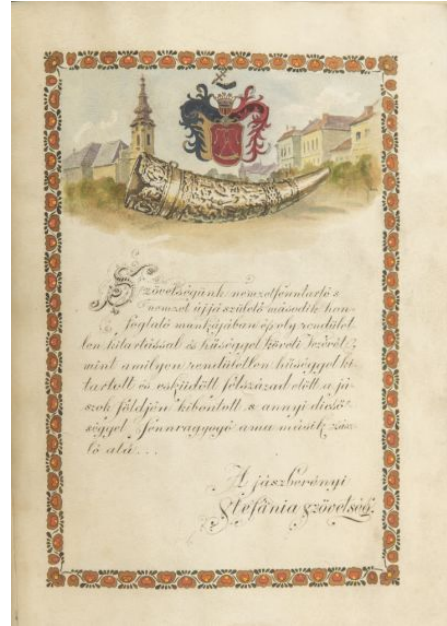 Szövetségünk nemzetfenntartó s
nemzet újjászülető második hon-
foglaló munkájában ép oly rendület-
len kitartással és hűséggel követi Vezérét,
mint amilyen rendületlen hűséggel ki-
tartott és esküdött félszázad előtt a já-
szok földjén kibontott s annyi dicső-
séggel fennragyogó ama másik zász-
ló alá...
A jászberényi
Stefánia szövetség.